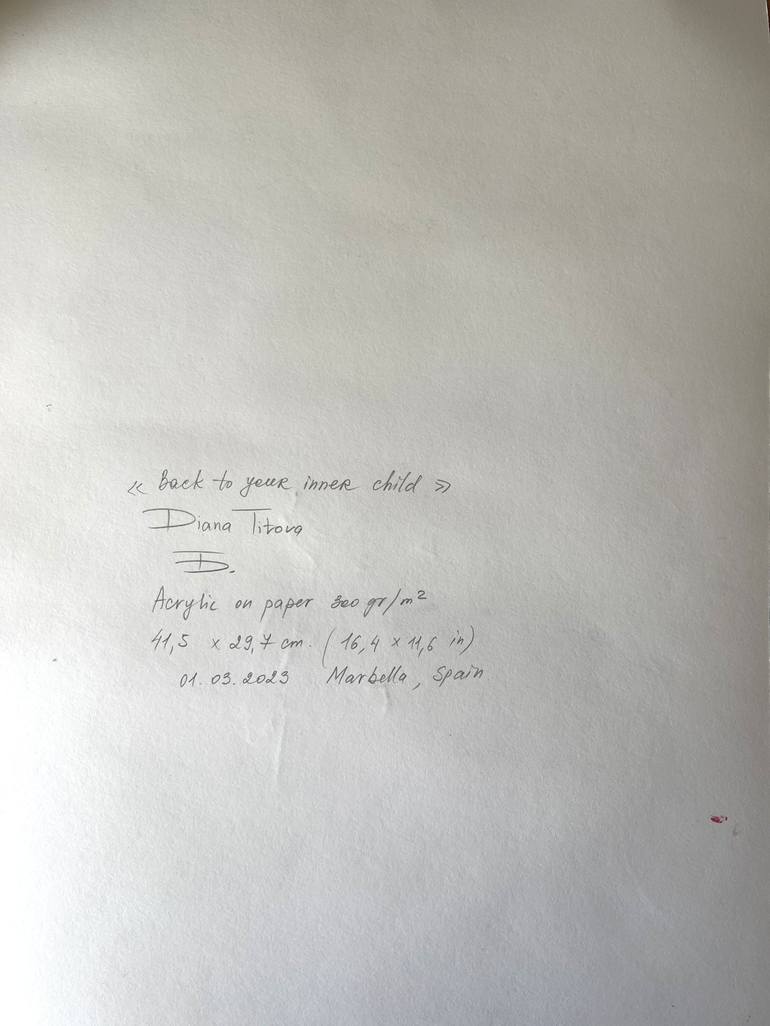 « Back to your inner child »
Diana Titova
D.
Acrylic on paper 300 gr/m²
41,5 x 29,7 cm. (16,4 x 11,6 in)
01.03.2023 Marbella, Spain